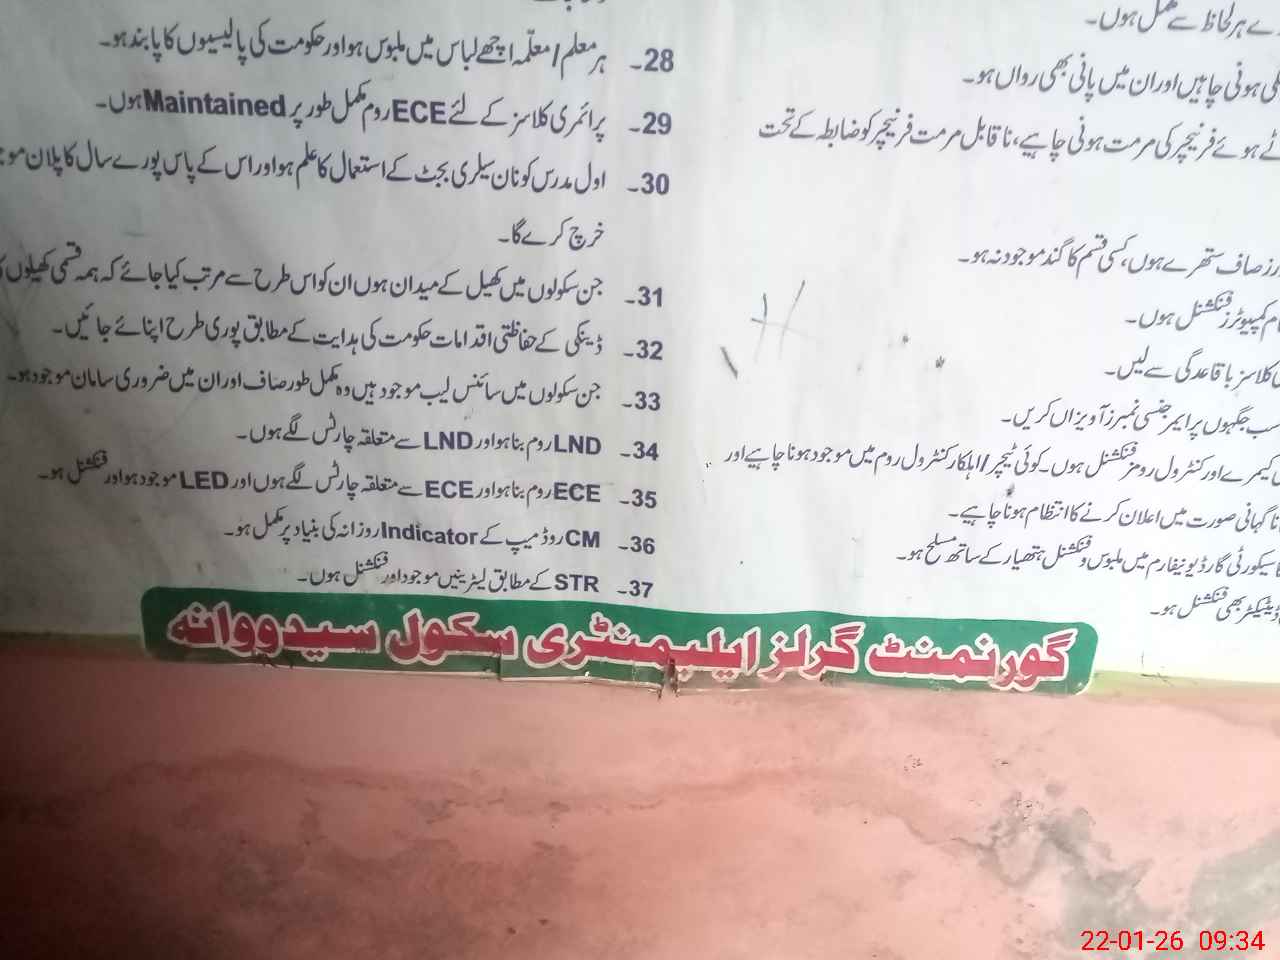 ے ہر لحاظ سے مکمل ہوں۔
ہونی چاہیں اور ان میں پانی بھی رواں ہو۔
ہوئے فرنیچر کی مرمت ہونی چاہیے، ناقابل مرمت فرنیچر کو ضابطہ کے تحت
صاف ستھرے ہوں، کسی قسم کا گند موجود نہ ہو۔
کمپیوٹرز فنکشنل ہوں۔
کلاسز باقاعدگی سے لیں۔
جگہوں پر ایمرجنسی نمبرز آویزاں کریں۔
کیمرے اور کنٹرول رومز فنکشنل ہوں۔ کوئی ٹیچر/اہلکار کنٹرول روم میں موجود ہونا چاہیے اور
ناگہانی صورت میں اعلان کرنے کا انتظام ہونا چاہیے۔
سیکورٹی گارڈ یونیفارم میں ملبوس و فنکشنل ہتھیار کے ساتھ مسلح ہو۔
ڈیٹیکٹر بھی فنکشنل ہو۔
28۔ ہر معلم/معلّمہ اچھے لباس میں ملبوس ہو اور حکومت کی پالیسیوں کا پابند ہو۔
29۔ پرائمری کلاسز کے لئے ECE روم مکمل طور پر Maintained ہوں۔
30۔ اول مدرس کو نان سیلری بجٹ کے استعمال کا علم ہو اور اس کے پاس پورے سال کا پلان
خرچ کرے گا۔
31۔ جن سکولوں میں کھیل کے میدان ہوں ان کو اس طرح سے مرتب کیا جائے کہ ہمہ قسمی کھیلوں
32۔ ڈینگی کے حفاظتی اقدامات حکومت کی ہدایت کے مطابق پوری طرح اپنائے جائیں۔
33۔ جن سکولوں میں سائنس لیب موجود ہیں وہ مکمل طور صاف اور ان میں ضروری سامان موجود ہو۔
34۔ LND روم بنا ہو اور LND سے متعلقہ چارٹس لگے ہوں۔
35۔ ECE روم بنا ہو اور ECE سے متعلقہ چارٹس لگے ہوں اور LED موجود ہو اور فنکشنل ہو۔
36۔ CM روڈ میپ کے Indicator روزانہ کی بنیاد پر مکمل ہو۔
37۔ STR کے مطابق لیٹرینیں موجود اور فنکشنل ہوں۔
گورنمنٹ گرلز ایلیمنٹری سکول سیدووانہ
22-01-26 09:34